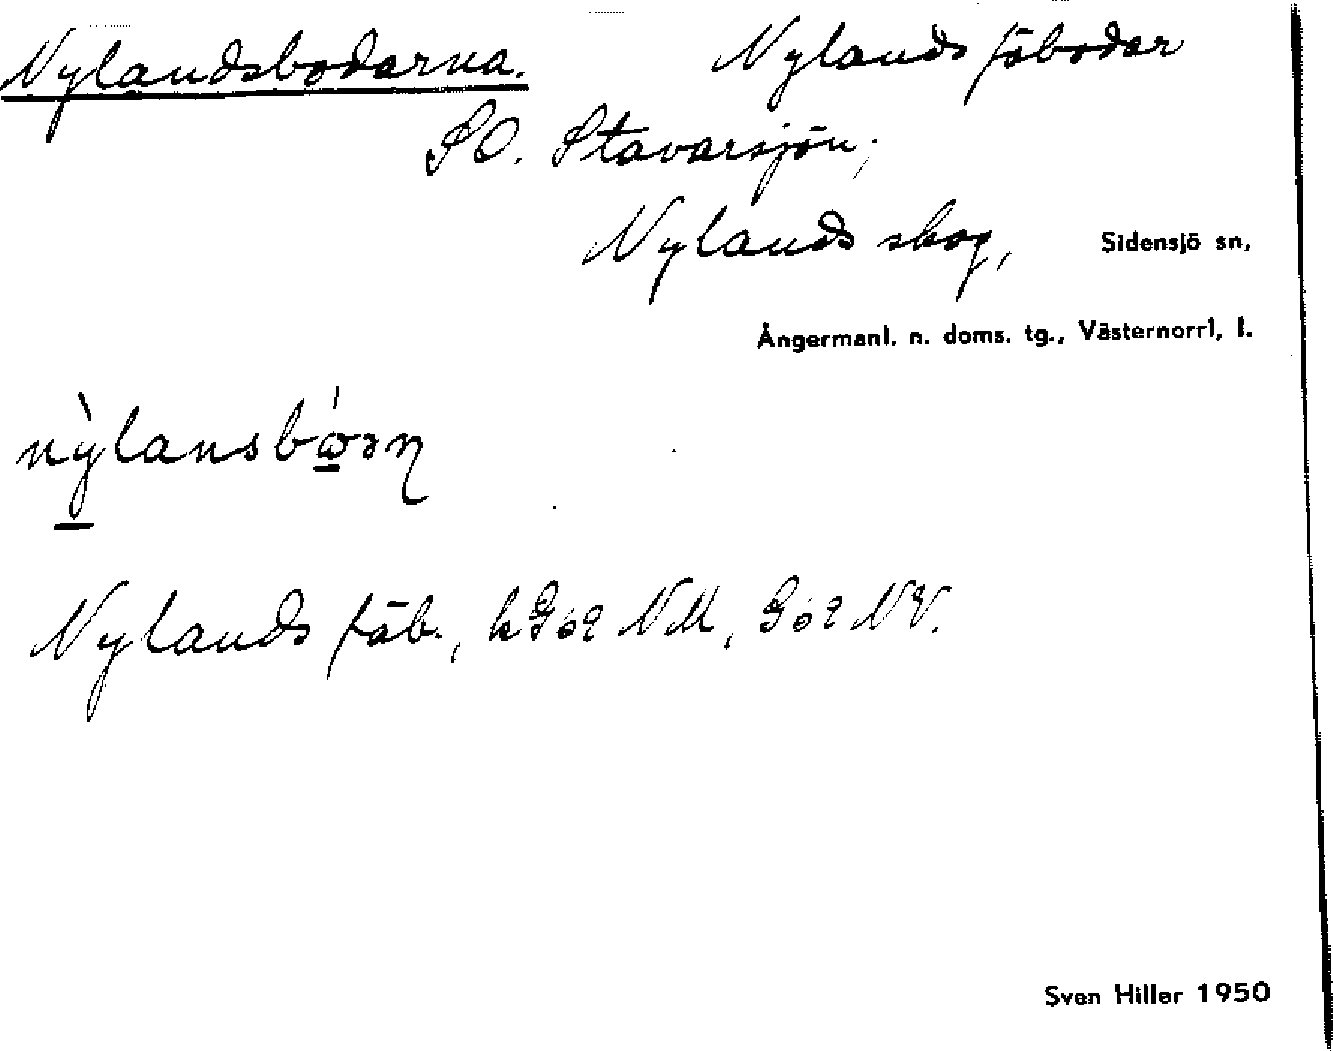 Nylandsbodarna. Nylands fäbodar
SO. Stavarsjön;
Nylands skog, Sidensjö sn,
Ångermanl. n. doms. tg., Västernorrl, l.
Nylands fäb., k
Sven Hiller 1950